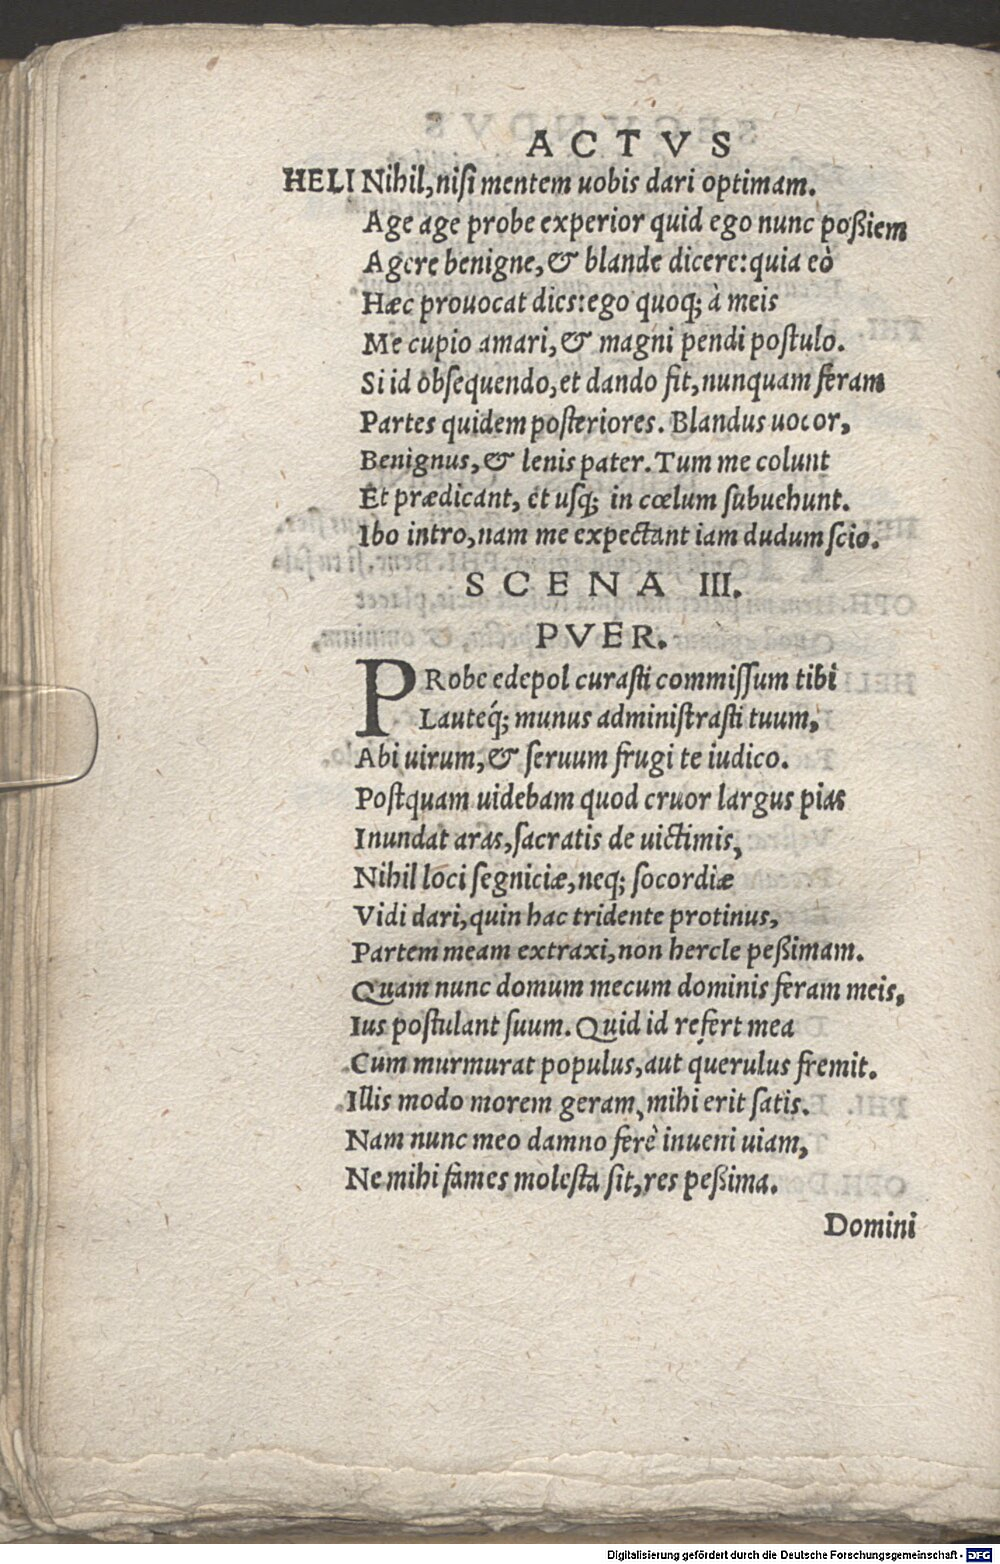 ACTVS
HELI Nihil, nisi mentem uobis dari optimam.
Age age probe experior quid ego nunc poßiem
Agere benigne, & blande dicere: quia eò
Hæc prouocat dies: ego quoq; à meis
Me cupio amari, & magni pendi postulo.
Si id obsequendo, et dando fit, nunquam feram
Partes quidem posteriores. Blandus uocor,
Benignus, & lenis pater. Tum me colunt
Et prædicant, et usq; in cœlum subuehunt.
Ibo intro, nam me expectant iam dudum scio.
SCENA III.
PVER.
PRobe edepol curasti commissum tibi
Lauteq́; munus administrasti tuum,
Abi uirum, & seruum frugi te iudico.
Postquam uidebam quod cruor largus pias
Inundat aras, sacratis de uictimis,
Nihil loci segniciæ, neq; socordiæ
Vidi dari, quin hac tridente protinus,
Partem meam extraxi, non hercle peßimam.
Quam nunc domum mecum dominis feram meis,
Ius postulant suum. Quid id refert mea
Cum murmurat populus, aut querulus fremit.
Illis modo morem geram, mihi erit satis.
Nam nunc meo damno ferè inueni uiam,
Ne mihi fames molesta sit, res peßima.
Domini
Digitalisierung gefördert durch die Deutsche Forschungsgemeinschaft - DFG